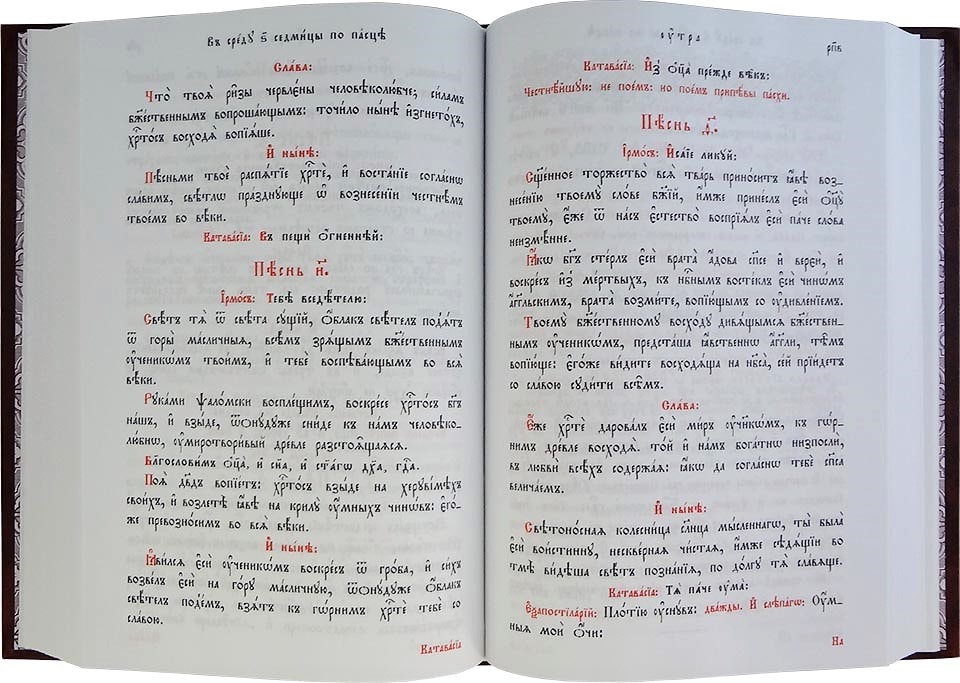 Въ сре́ду ѕ҃ седми́цы по па́сцѣ
Сла́ва:
Что̀ твоѧ̑ ри̑зы червле́ны человѣколю́бче, си́ламъ
бж҃е́ственнымъ вопроша́ющымъ: точи́ло ны́нѣ и҆згнето́хъ,
хрⷭ҇то́съ восходѧ̀ вопїѧ́ше.
И҆ ны́нѣ:
Пѣ́сньми твоѐ распѧ́тїе хрⷭ҇тѐ, и҆ воста́нїе согла́снѡ
сла́вимъ, свѣ́тлѡ пра́зднующе ѡ҆ вознесе́нїи че́стнѣмъ
твое́мъ во вѣ́ки.
Катава́сїа: Въ пещѝ ѻ҆́гненнѣй:
Пѣ́снь и҃.
І҆рмо́съ: Тебѐ вседѣ́телю:
Свѣ́тъ тѧ̀ ѿ свѣ́та су́щїй, ѻ҆́блакъ свѣ́телъ под̾ѧ́тъ
ѿ горы̀ ма́сличныѧ, всѣ̑мъ зрѧ́щымъ бж҃е́ственнымъ
ᲂу҆ченикѡ́мъ твои̑мъ, и҆ тебѐ воспѣва́ющымъ во всѧ̑
вѣ́ки.
Рука́ми ѱало́мски воспле́щимъ, воскре́се хрⷭ҇то́съ бг҃ъ
на́шъ, и҆ взы́де, ѿѻнꙋ́дꙋже сни́де къ на́мъ человѣко-
лю́бнѡ, ᲂу҆миротвори́вый дре́вле разстоѧ́щаѧсѧ.
Благослови́мъ ѻ҆ц҃а̀, и҆ сн҃а, и҆ ст҃а́гѡ дх҃а, гдⷭ҇а.
Поѧ̀ дв҃дъ вопїе́тъ: хрⷭ҇то́съ взы́де на херꙋві́мѣхъ
свои́хъ, и҆ возлетѣ̀ ꙗ҆́вѣ на крилꙋ̀ ᲂу҆́мныхъ чинѡ́въ: є҆го́-
же превозно́симъ во всѧ̑ вѣ́ки.
И҆ ны́нѣ:
Ꙗ҆ви́лсѧ є҆сѝ ᲂу҆ченикѡ́мъ воскре́съ ѿ гро́ба, и҆ си́хъ
возве́лъ є҆сѝ на го́рꙋ ма́сличнꙋю, ѿѻнꙋ́дꙋже ѻ҆́блакъ
свѣ́телъ поде́мъ, взѧ́тъ къ гѡ́рнимъ хрⷭ҇тѐ тебѐ со
сла́вою.
Катава́сїа
ᲂу҆́тра
рп҃в
Катава́сїа: И҆з̾ ѻ҆ц҃а̀ пре́жде вѣ̑къ:
Честнѣ́йшꙋю: не пое́мъ: но пое́мъ припѣ́вы па́схи.
Пѣ́снь ѳ҃.
І҆рмо́съ: И҆са́їе ликꙋ́й:
Сщ҃е́нное торжество̀ всѧ̀ тва́рь прино́ситъ ꙗ҆́вѣ воз-
несе́нїю твоемꙋ̀ сло́ве бж҃їй, и҆́мже прине́слъ є҆сѝ ѻ҆ц҃ꙋ̀
твоемꙋ̀, є҆́же ѿ на́съ є҆стество̀ воспрїѧ́лъ є҆сѝ па́че сло́ва
неизмѣ́нне.
Ꙗ҆́кѡ бг҃ъ сте́рлъ є҆сѝ врата̀ а҆́дова сп҃се и҆ верєѝ, и҆
воскре́съ и҆з̾ ме́ртвыхъ, къ нб҃нымъ восте́клъ є҆сѝ чинѡ́мъ
а҆́гг҃льскимъ, врата̀ возми́те, вопїю́щымъ со ᲂу҆дивле́нїемъ.
Твоемꙋ̀ бж҃е́ственномꙋ восхо́дꙋ дивѧ́щымсѧ бж҃е́ствен-
нымъ ᲂу҆ченикѡ́мъ, предста́ша ꙗ҆́вственнѡ а҆́гг҃ли, тѣ̑мъ
вопїю́ще: є҆го́же ви́дите восходѧ́ща на нб҃са̀, се́й прїи́детъ
со сла́вою сꙋди́ти всѣ̑мъ.
Сла́ва:
Є҆́же хрⷭ҇тѐ дарова́лъ є҆сѝ ми́ръ ᲂу҆чн҃кѡ́мъ, къ гѡ́р-
нимъ дре́вле восходѧ̀. то́й и҆ на́мъ бога́тнѡ низпослѝ,
въ любвѝ всѣ́хъ содержа̀: ꙗ҆́кѡ да согла́снѡ тебѐ сп҃са
велича́емъ.
И҆ ны́нѣ:
Свѣтоно́снаѧ колесни́ца сл҃нца мы́сленнагѡ, ты̀ была̀
є҆сѝ вои́стиннꙋ, нескве́рнаѧ чи́стаѧ, и҆́мже сѣдѧ́щїи во
тмѣ̀ ви́дѣша свѣ́тъ позна́нїѧ, по до́лгꙋ тѧ̀ сла́вѧще.
Катава́сїа: Тѧ̀ па́че ᲂу҆ма̀:
Є҆ѯапостїла́рїй: Пло́тїю ᲂу҆снꙋ́въ: два́жды. И҆ слѣпа́гѡ: Оу҆́м-
ныѧ моѝ ѻ҆́чи:
На